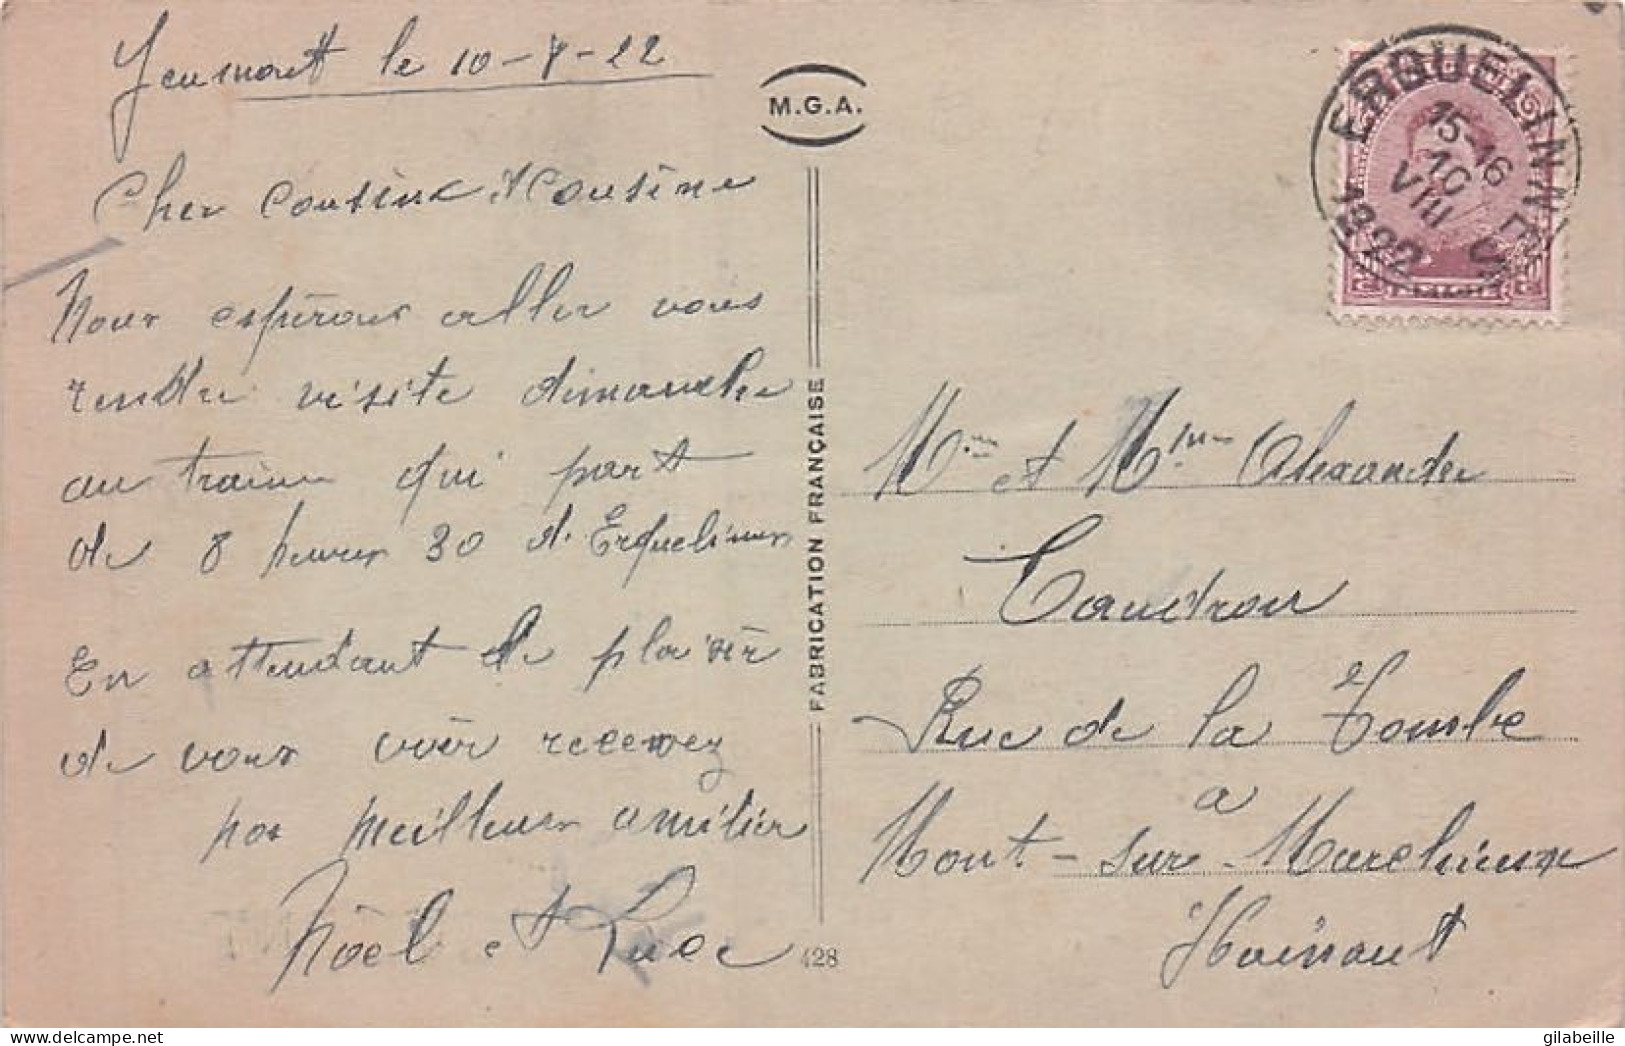 Jeumont le 10-8-22
Cher Cousine et Cousine
Nous espérons aller vous
rendre visite dimanche
au train qui part
de 8 heures 30 d'Erquelinnes
En attendant le plaisir
de vous voir recevez
nos meilleurs amitiés
Nöel et Luce
M.G.A.
FABRICATION FRANÇAISE
428
ERQUELINNES
15-16
10
VIII
1922
et Mme Alexandre
Caudron
Rue de la Tombe
a
Mont-sur-Marchienne
Hainaut
gilabeille